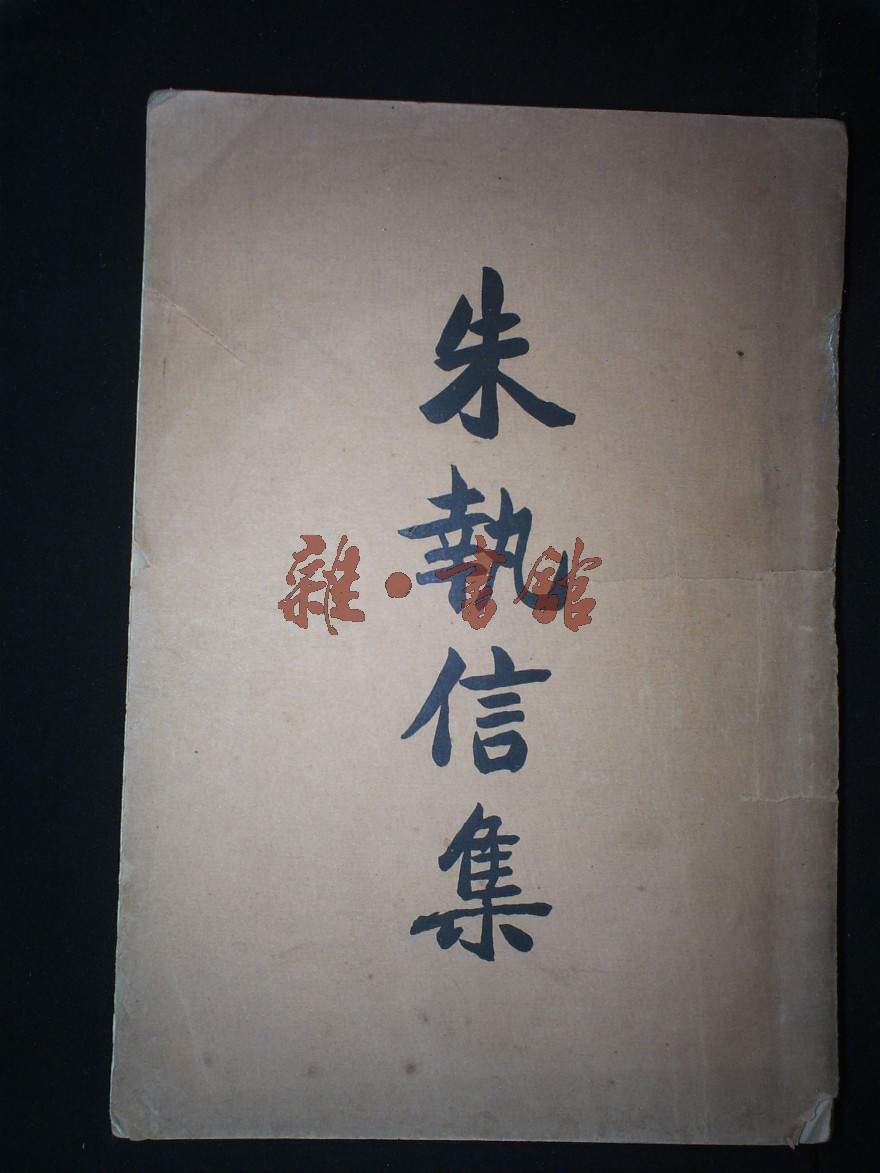 朱執信集
雜·書館